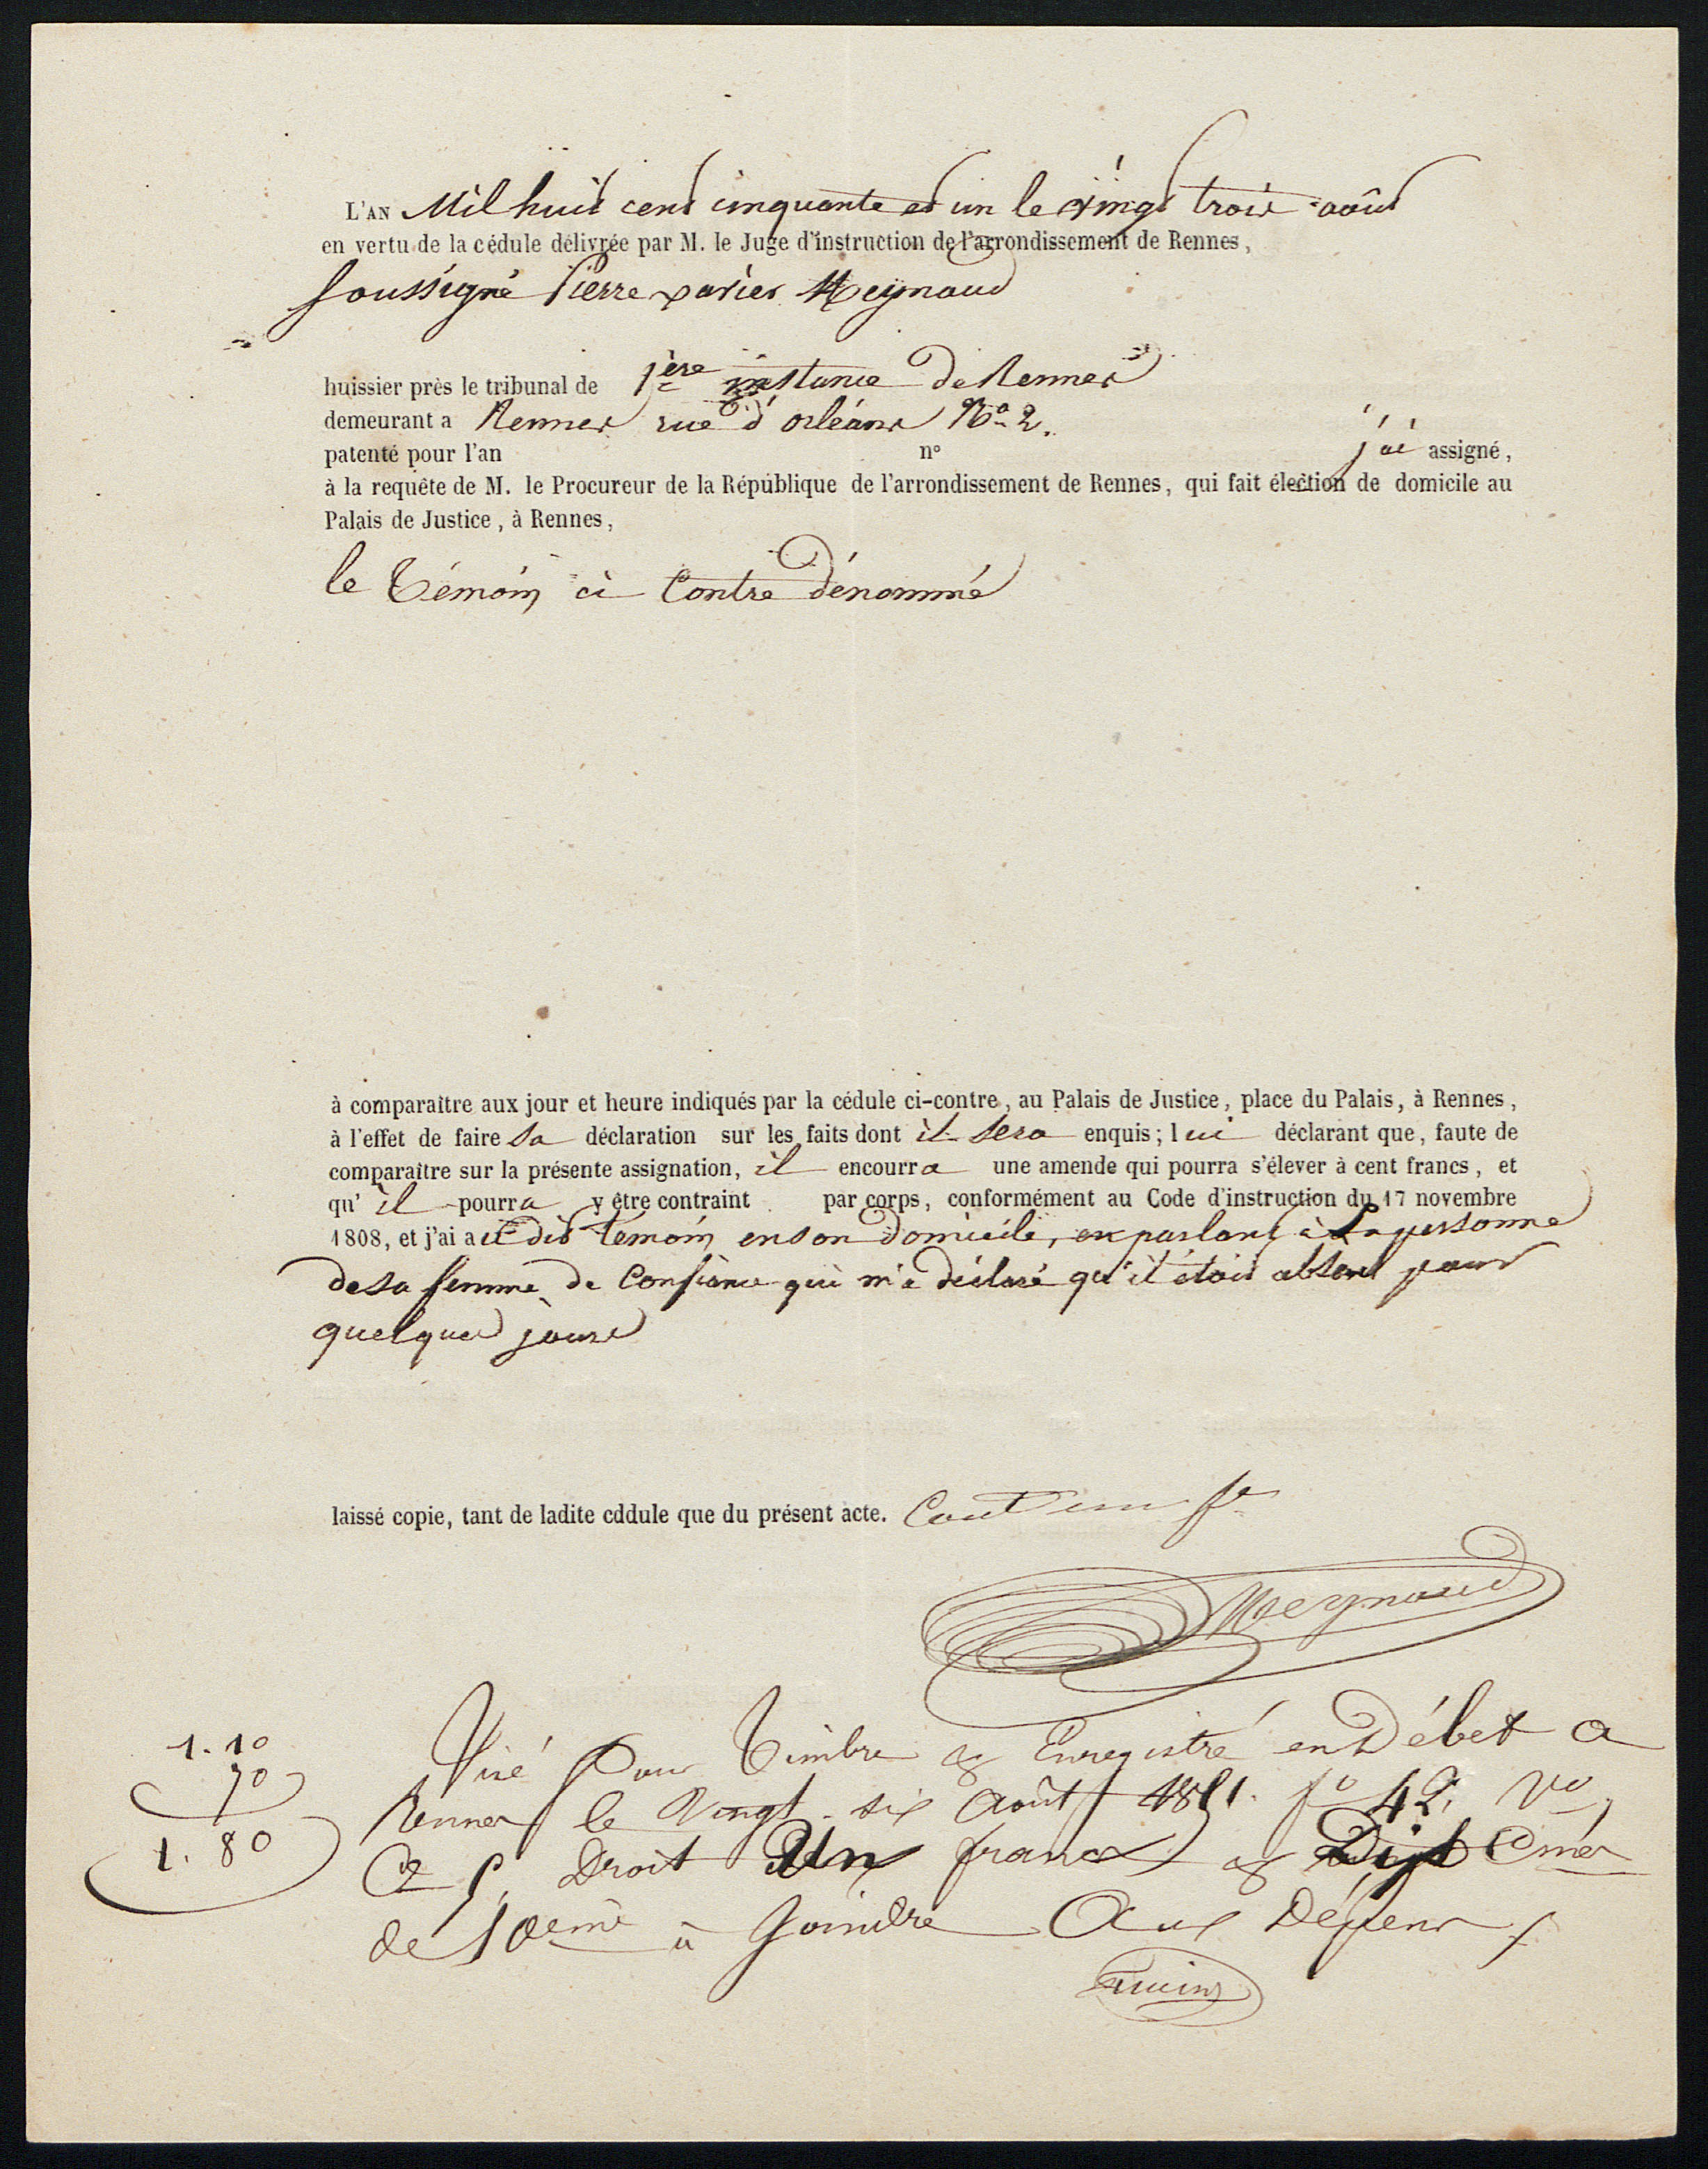 L'AN Mil huit cent cinquante et un le vingt trois août
en vertu de la cédule délivrée par M. le Juge d'instruction de l'arrondissement de Rennes,
Soussigné Pierre xavier Meynaud
huissier près le tribunal de 1ère instance De Rennes
demeurant a Rennes rue d'orléans No 2.
patenté pour l'an n° j'ai assigné,
à la requête de M. le Procureur de la République de l'arrondissement de Rennes, qui fait élection de domicile au
Palais de Justice, à Rennes,
le Témoin ci Contre Dénommé
à comparaître aux jour et heure indiqués par la cédule ci-contre, au Palais de Justice, place du Palais, à Rennes,
à l'effet de faire sa déclaration sur les faits dont il sera enquis; lui déclarant que, faute de
comparaître sur la présente assignation, il encourra une amende qui pourra s'élever à cent francs, et
qu'il pourra y être contraint par corps, conformément au Code d'instruction du 17 novembre
1808, et j'ai au dit témoin en son Domicile, en parlant à la personne
de sa femme de Confiance qui m'a déclaré qu'il était absent pour
quelques jours
laissé copie, tant de ladite cddule que du présent acte. Cout un fr
Meynaud
1.10
70
1.80
Visé Pour Timbre & Enregistré en Débet a
Rennes le Vingt-six Août 1851. fo 42. Vo,
Ce 5. Droit Un franc & Dix Cmes
de 10eme à Joindre Aux Dépens